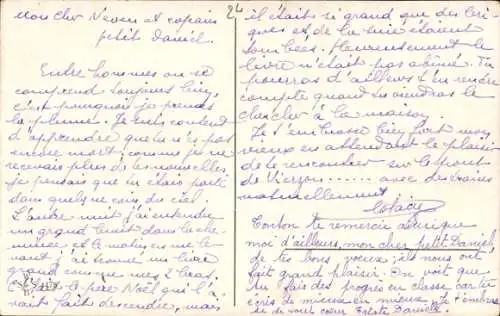 Mon cher Neveu et copain
petit Daniel.
Entre hommes on se
comprend toujours bien,
c'est pourquoi je prends
la plume. Je suis content
d'apprendre que tu n'es pas
encore mort, comme je ne
recevais plus de tes nouvelles
je pensais que tu étais parti
dans quelque coin du ciel.
L'autre nuit j'ai entendu
un grand bruit dans la che-
minée et le matin en me le-
vant j'ai trouvé un livre
grand comme mes 2 bras.
C'est le père Noël qui l'a-
vait fait descendre, mais
24
il était si grand que des bri-
ques et de la suie étaient
tombées. Heureusement le
livre n'était pas abîmé. Tu
pourras d'ailleurs t'en rendre
compte quand tu viendras le
chercher à la maison.
Je t'embrasse bien fort mon
vieux en attendant le plaisir
de te rencontrer sur le pont
de Vierzon ...... avec des
naturellement
Tonton te remercie ainsi que
moi d'ailleurs, mon cher petit Daniel,
de tes bons voeux; ils nous ont
fait grand plaisir. On voit que
tu fais des progrès en classe car tu
écris de mieux en mieux. Je t'embrasse
de tout coeur